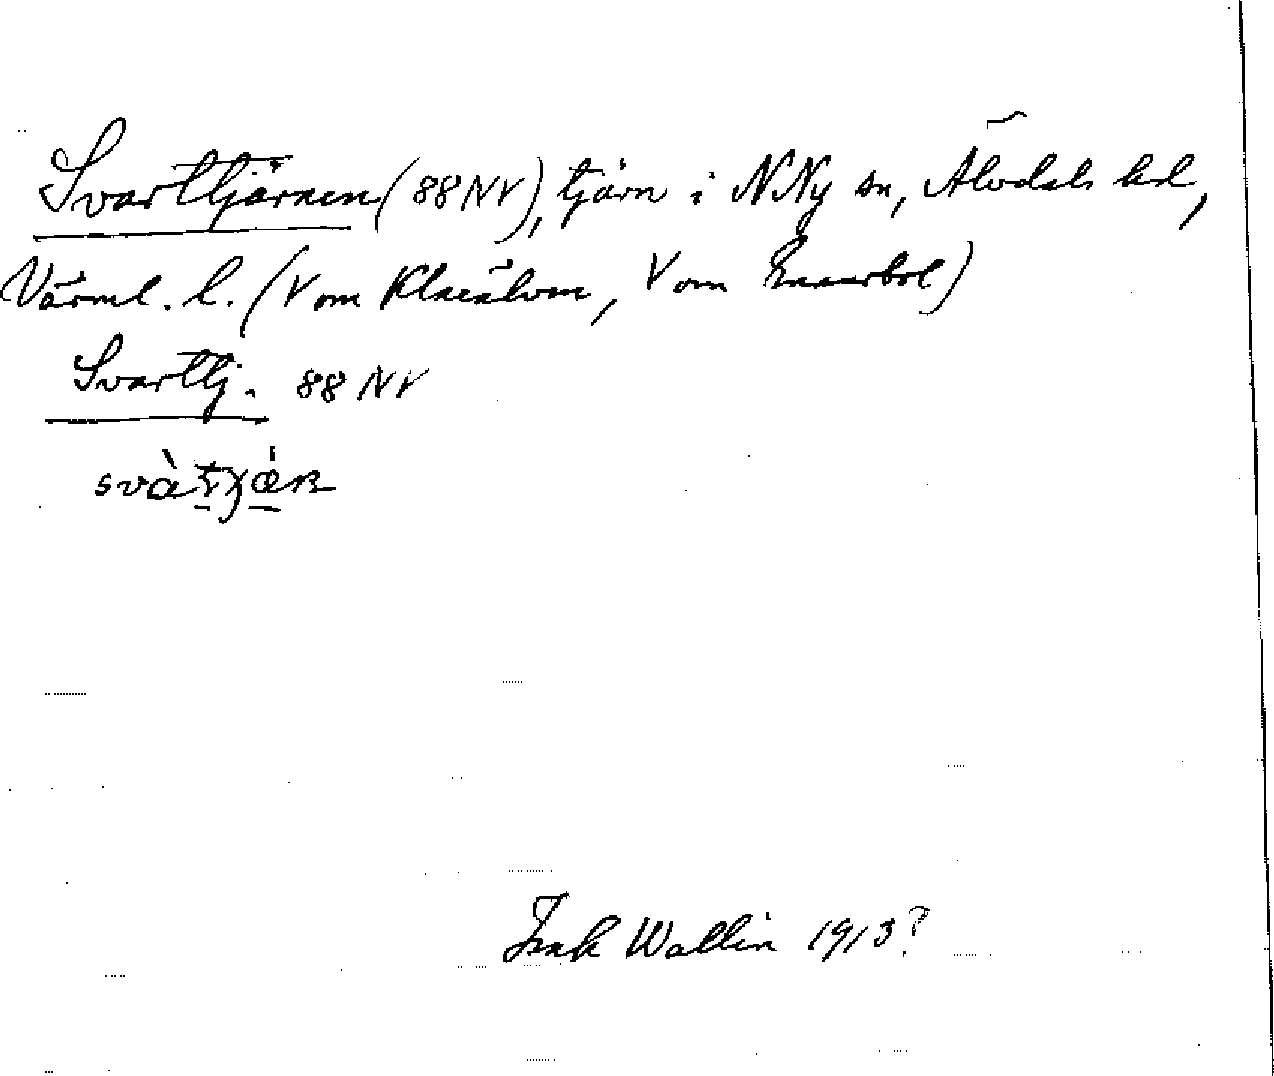 Svarttjärnen (88NV), tjärn i N Ny sn, Älvdals hd,
Värml. l. (V om Klarälven, V om Enarbol)
Svarttj. 88 NV
Isak Wallin 1913?